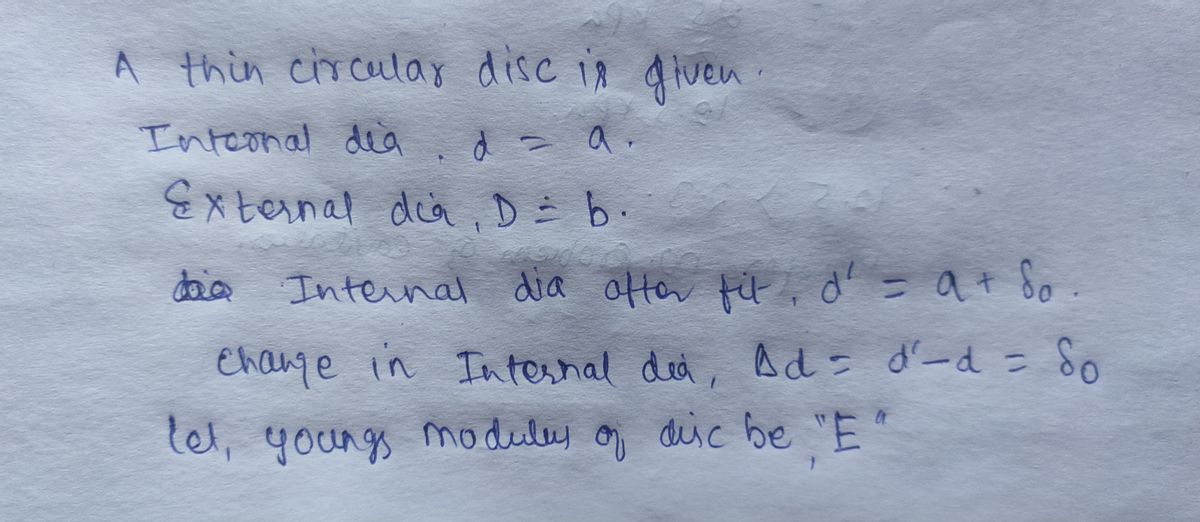 A thin circular disc is given.
Internal dia, d = a.
External dia, D = b.
Internal dia after fit, d' = a + δ₀.
Change in Internal dia, Δd = d' - d = δ₀
let, youngs modulus of disc be, "E"